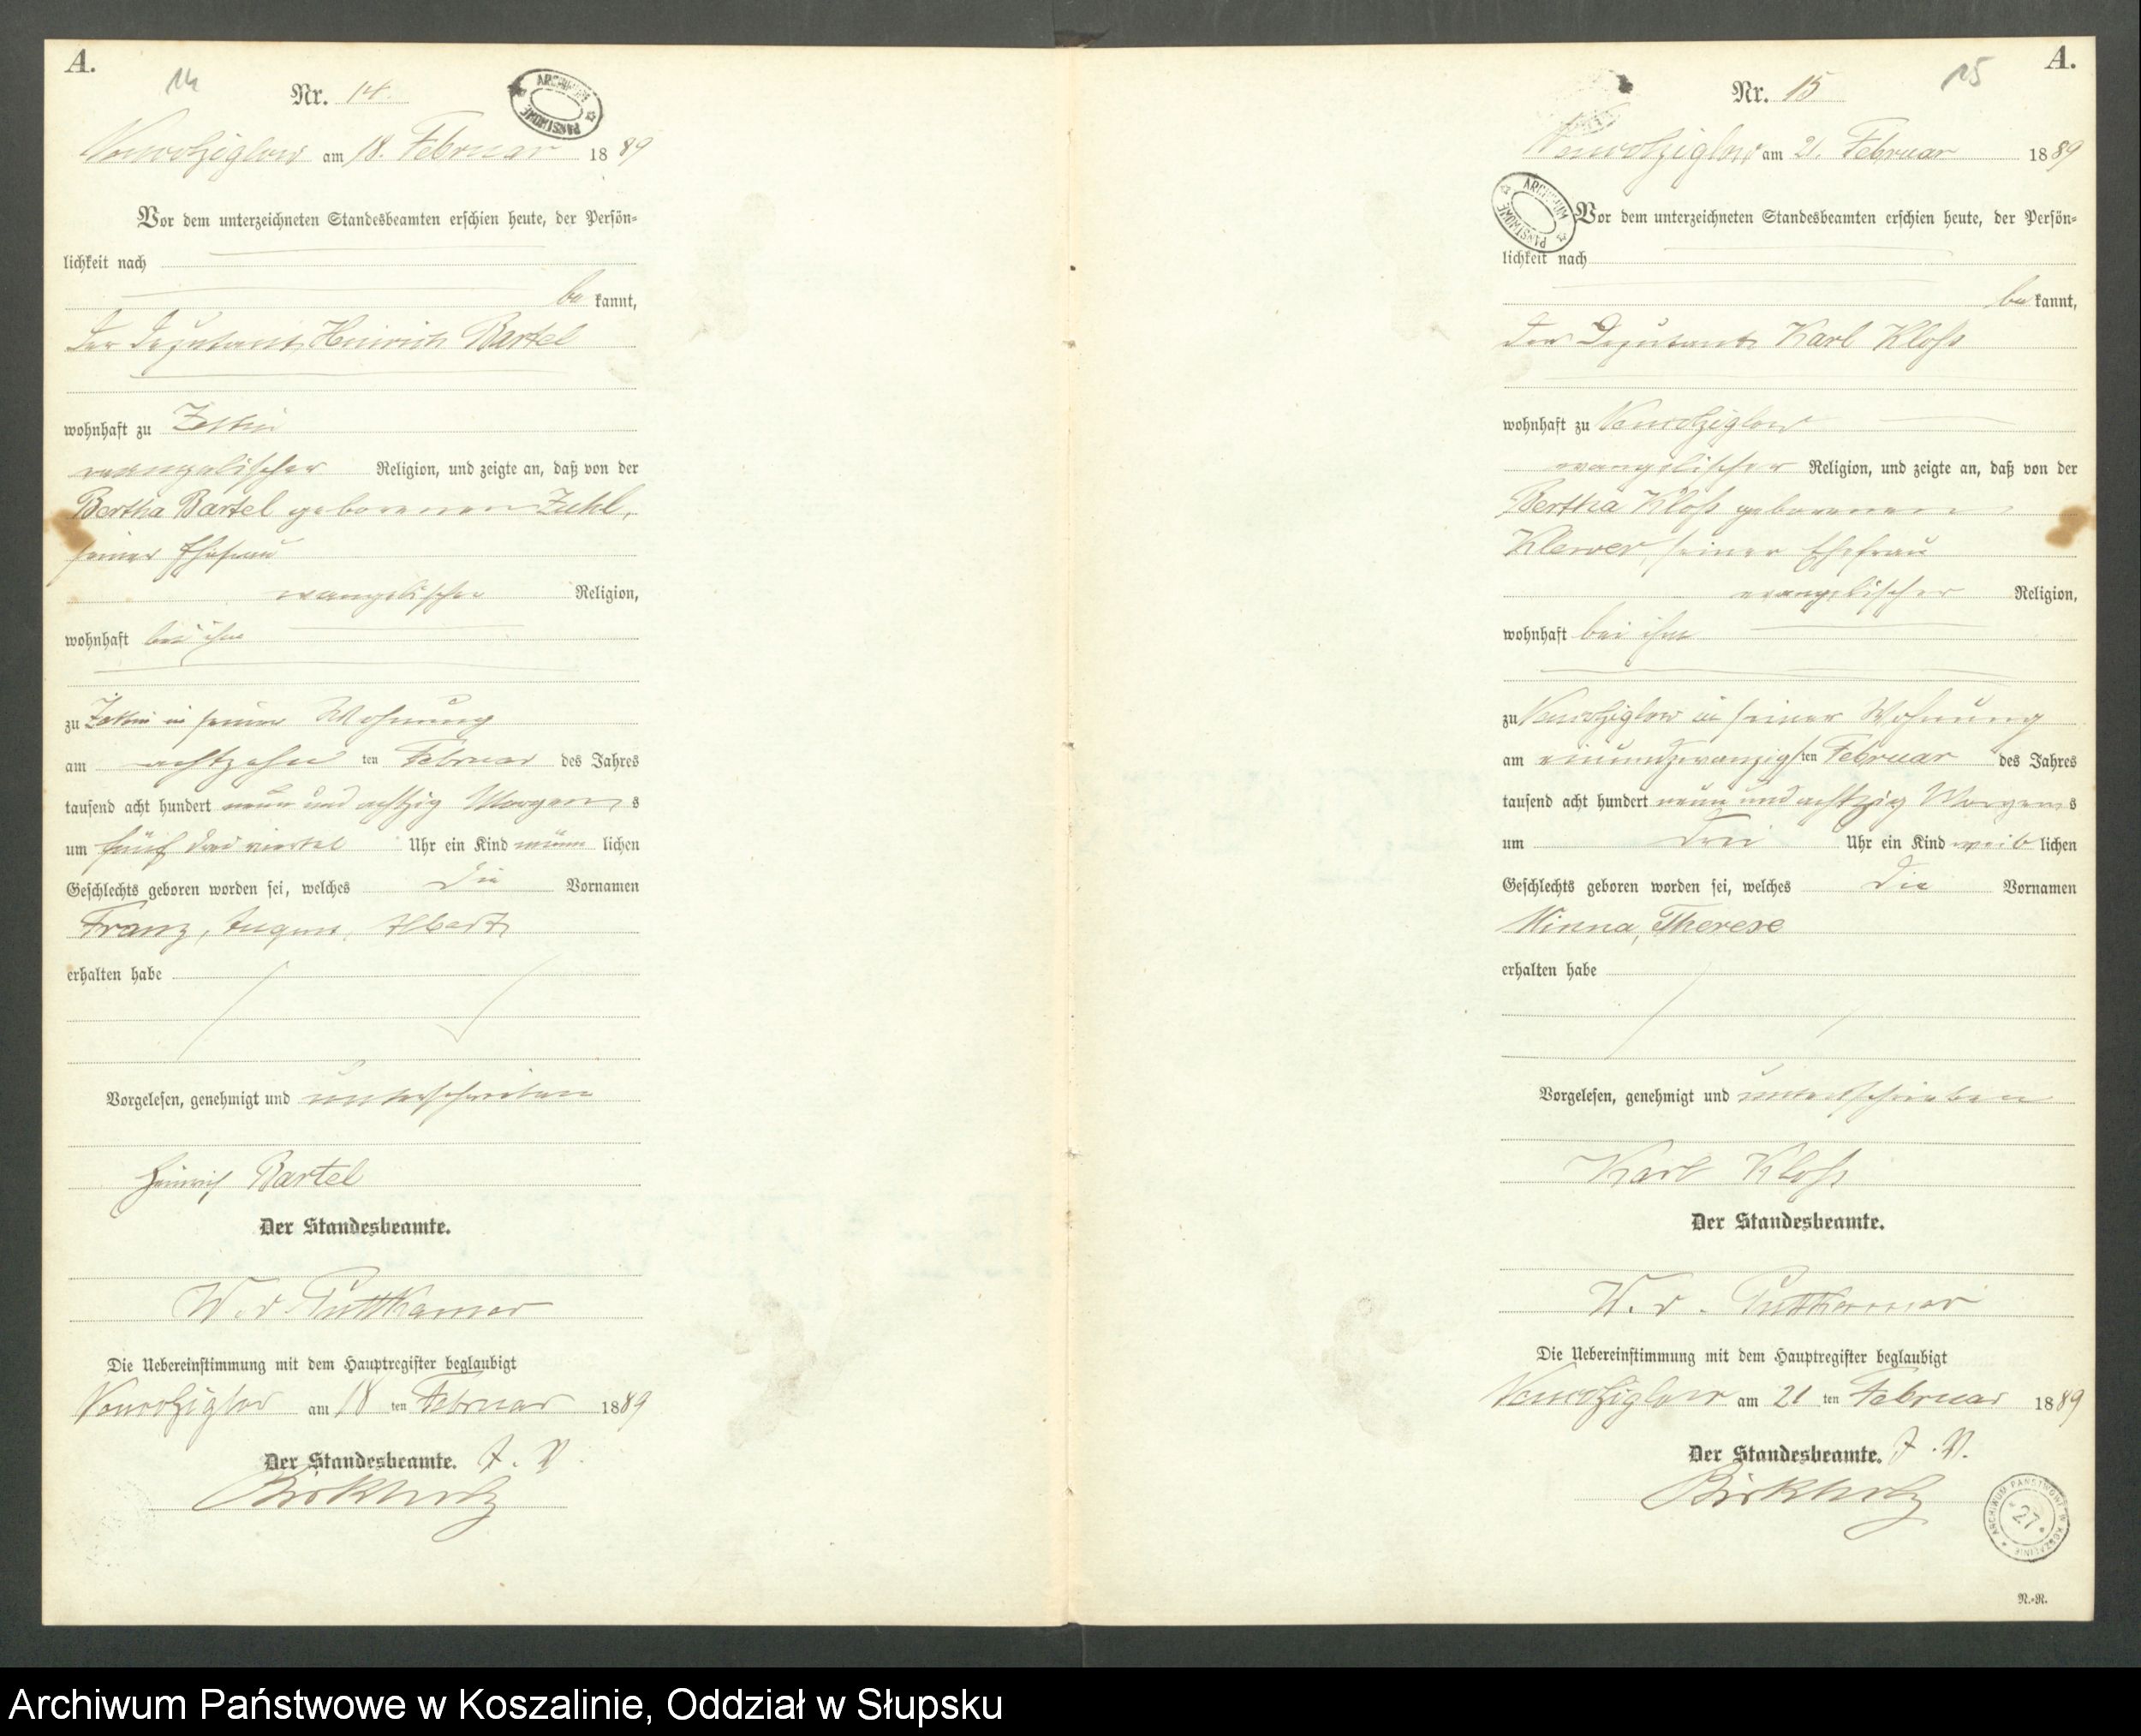 A.
14
Nr. 14.
ARCHIWUM PAŃSTWOWE
am 18. Februar 1889
Vor dem unterzeichneten Standesbeamten erschien heute, der Persön-
lichkeit nach
be kannt,
der Deputant Heinrich Bartel
wohnhaft zu Zettin
evangelischer Religion, und zeigte an, daß von der
Bertha Bartel geborenen Zuhl,
seiner Ehefrau
evangelischer Religion,
wohnhaft bei ihm
zu Zettin in seiner Wohnung
am achtzehn ten Februar des Jahres
tausend acht hundert neun und achtzig Morgens
um fünf drei viertel Uhr ein Kind männ lichen
Geschlechts geboren worden sei, welches die Vornamen
Franz, August, Albert
erhalten habe
Vorgelesen, genehmigt und unterschrieben
Heinrich Bartel
Der Standesbeamte.
W. v. Puttkamer
Die Uebereinstimmung mit dem Hauptregister beglaubigt
am 18 ten Februar 1889
Der Standesbeamte. J. V.
Birkholz
A.
15
Nr. 15
am 21. Februar 1889
ARCHIWUM PAŃSTWOWE
Vor dem unterzeichneten Standesbeamten erschien heute, der Persön-
lichkeit nach
be kannt,
der Deputant Karl Kloß
wohnhaft zu
evangelischer Religion, und zeigte an, daß von der
Bertha Kloß geborenen
Klewer, seiner Ehefrau
evangelischer Religion,
wohnhaft bei ihm
zu in seiner Wohnung
am einundzwanzigsten Februar des Jahres
tausend acht hundert neun und achtzig Morgens
um drei Uhr ein Kind weib lichen
Geschlechts geboren worden sei, welches die Vornamen
Minna, Therese
erhalten habe
Vorgelesen, genehmigt und unterschrieben
Karl Kloß
Der Standesbeamte.
W. v. Puttkamer
Die Uebereinstimmung mit dem Hauptregister beglaubigt
am 21 ten Februar 1889
Der Standesbeamte. J. V.
Birkholz
ARCHIWUM PAŃSTWOWE W KOSZALINIE
27
N.-N.
Archiwum Państwowe w Koszalinie, Oddział w Słupsku